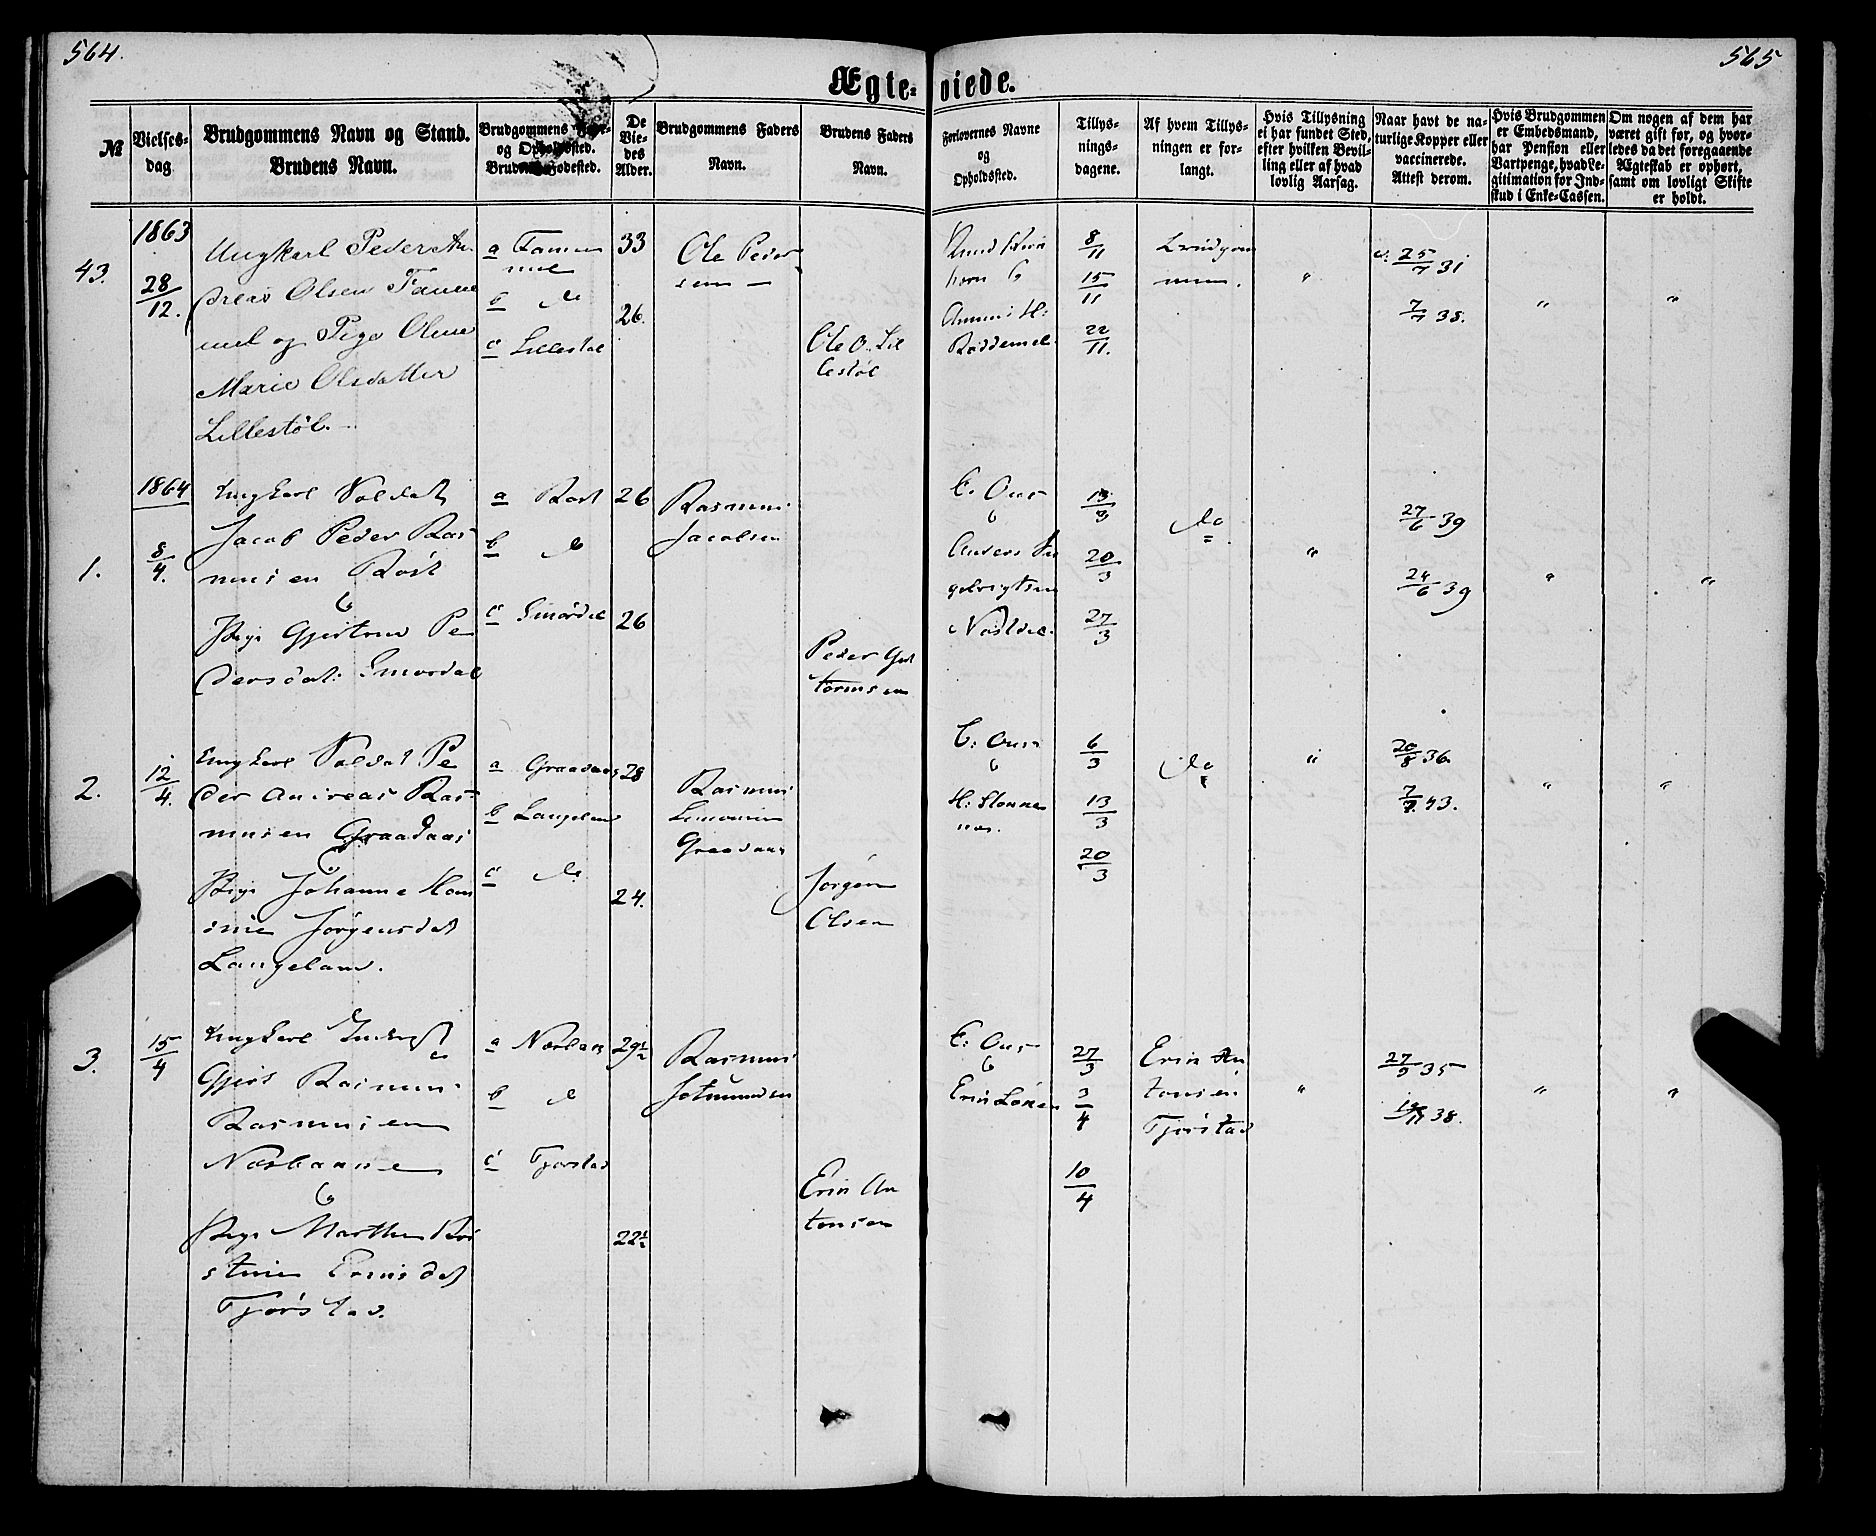 564.
565
Ægte-viede.
№
Vielses-
dag
Brudgommens Navn og Stand.
Brudens Navn.
Brudgommens Føde-
og Opholdssted.
Brudens Fødested.
De
Vie-
des
Alder.
Brudgommens Faders
Navn.
Brudens Faders
Navn.
Forlovernes Navne
og
Opholdssted.
Tillys-
nings-
dagene.
Af hvem Tillys-
ningen er for-
langt.
Hvis Tillysning
ei har fundet Sted,
efter hvilken Bevil-
ling eller af hvad
lovlig Aarsag.
Naar havt de na-
turlige Kopper eller
vaccinerede.
Attest derom.
Hvis Brudgommen
er Embedsmand,
har Pension eller
Vartpenge, hvad Le-
gitimation for Ind-
skud i Enke-Cassen.
Om nogen af dem har
været gift for, og hvor-
ledes da det foregaaende
Ægteskab er ophørt,
samt om lovligt Skifte
er holdt.
43.
1863
28/12.
Ungkarl Peder An
dreas Olsen Fanne
mel og Pige Oline
Marie Olsdatter
Lillestöl.
a Fanne
mel
b do
c Lillestöl
33
26.
Ole Peder
sen
Ole O. Lil
lestöl
Anmi H:
Röddemel
8/11
15/11
22/11.
Brudgom
men.
"
v. 25/7 31
7/7 38.
"
"
1.
1864
8/4.
Ungkarl Soldat
Jacob Peder Ras
musen Röst
&
Pige Gjertrud Pe
dersdat: Smördal
a Röst
b do
c Smördal
26
26
Rasmus
Jacobsen
Peder Gut
tormsen
C. Aus
&
Anders In
gebrigtsen
13/3
20/3
27/3
do
"
27/6 39
24/6 39
"
"
2.
12/4.
Ungkarl Soldat Pe
der Andreas Ras
musen Graadaas
&
Pige Johanne Han
sine Jørgensdat
Langeland.
a Graadaas
b Langeland
c do
28
24.
Rasmus
Graadaas
Jørgen
Olsen
C: Aus
&
6/3
13/3
20/3
do
"
20/8 36
7/7 43.
"
"
3.
15/4
Ungkarl
Gjert Rasmus
Rasmusen
Næsbanne
&
Pige Marthe Kri
stine Eriksdat
Fjørstad.
a Næsban
b do
c Fjørstad
29½
22½
Rasmus
Erik An
tonsen
C: Aus
&
27/3
3/4
10/4
Erik An
tonsen
Fjørstad
"
27/5 35
38.
"
"